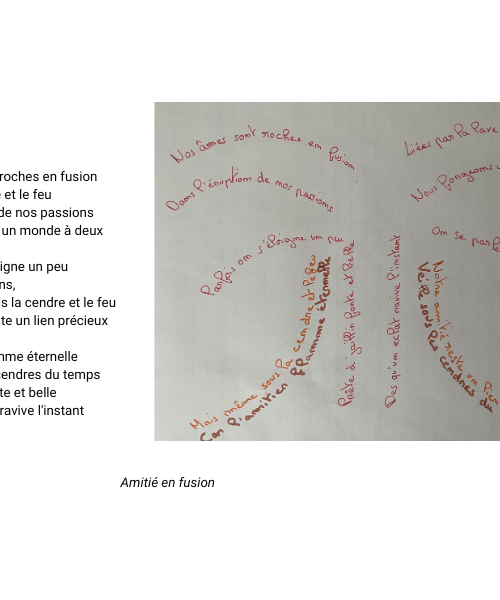 roches en fusion
e et le feu
de nos passions
un monde à deux
igne un peu
ns,
s la cendre et le feu
ste un lien précieux
mme éternelle
cendres du temps
te et belle
ravive l'instant
Nos âmes sont roches em fusion
Liées par la lave
Dans l'éruption de nos passions
Nous forgeons
Parfois on s'éloigne um peu
On se parle
Mais même sous la cendre et le feu
Notre amitié reste un lien
Can l'amitien flammme éternelle
Veille sous les cendres du
Prête à jaillir forte et belle
Des qu'um eclat ravive l'instant
Amitié en fusion